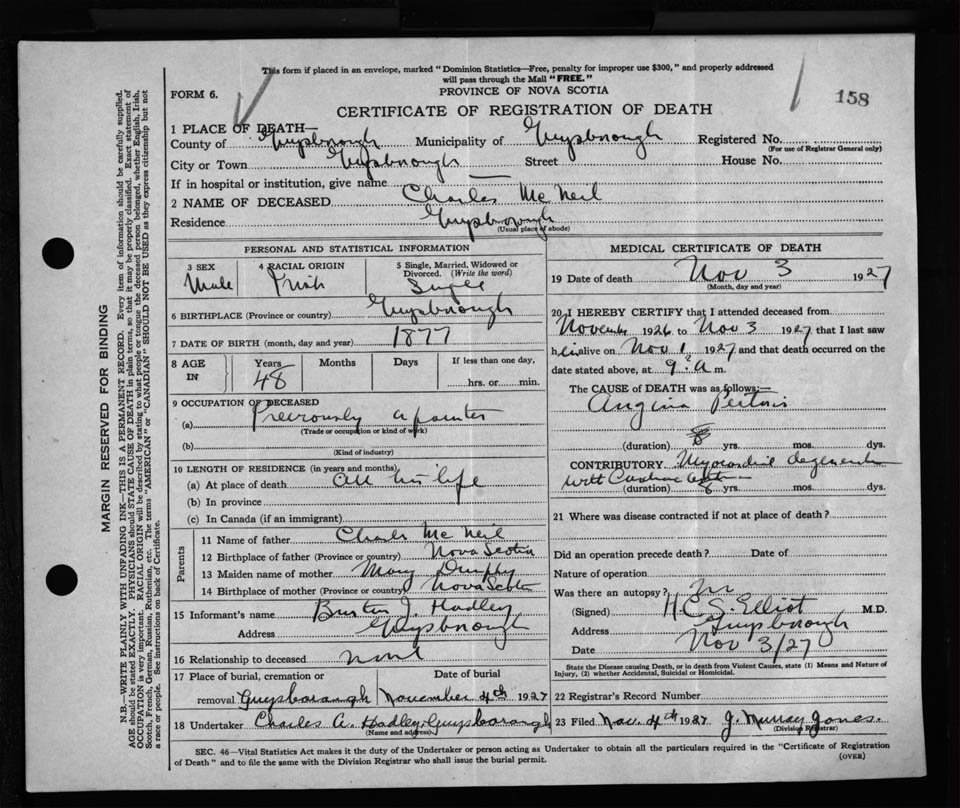 This form if placed in an envelope, marked "Dominion Statistics—Free, penalty for improper use $300," and properly addressed
will pass through the Mail "FREE."
FORM 6.
PROVINCE OF NOVA SCOTIA
158
CERTIFICATE OF REGISTRATION OF DEATH
1 PLACE OF DEATH—
County of Guysborough Municipality of Guysborough Registered No.
(For use of Registrar General only)
City or Town Guysborough Street House No.
If in hospital or institution, give name
2 NAME OF DECEASED Charles McNeil
Residence Guysborough
(Usual place of abode)
PERSONAL AND STATISTICAL INFORMATION
3 SEX 4 RACIAL ORIGIN 5 Single, Married, Widowed or Divorced. (Write the word)
Male Irish Single
6 BIRTHPLACE (Province or country) Guysborough
7 DATE OF BIRTH (month, day and year) 1877
8 AGE IN Years Months Days If less than one day,
48 hrs. or min.
9 OCCUPATION OF DECEASED
(a) Previously a painter
(Trade or occupation or kind of work)
(b)
(Kind of industry)
10 LENGTH OF RESIDENCE (in years and months)
(a) At place of death all his life
(b) In province
(c) In Canada (if an immigrant)
Parents
11 Name of father Charles McNeil
12 Birthplace of father (Province or country) Nova Scotia
13 Maiden name of mother Mary Dunphy
14 Birthplace of mother (Province or country) Nova Scotia
15 Informant's name Burton J. Hadley
Address Guysborough
16 Relationship to deceased none
17 Place of burial, cremation or Date of burial
removal Guysborough November 4th 1927
18 Undertaker Charles A. Hadley Guysborough
(Name and address)
MEDICAL CERTIFICATE OF DEATH
19 Date of death Nov 3 1927
(Month, day and year)
20 I HEREBY CERTIFY that I attended deceased from
November 1926 to Nov 3 1927 that I last saw
him alive on Nov 1 1927 and that death occurred on the
date stated above, at 9 a m.
The CAUSE of DEATH was as follows:—
Angina Pectoris
(duration) 8 yrs. mos. dys.
CONTRIBUTORY Myocardial degeneration
with Cardiac
(duration) 8 yrs. mos. dys.
21 Where was disease contracted if not at place of death?
Did an operation precede death? Date of
Nature of operation
Was there an autopsy? no
(Signed) H.C.S. Elliot M.D.
Address Guysborough
Date Nov 3/27
State the Disease causing Death, or in death from Violent Causes, state (1) Means and Nature of
Injury, (2) whether Accidental, Suicidal or Homicidal.
22 Registrar's Record Number
23 Filed Nov. 4th 1927. J. Murray Jones.
(Division Registrar)
SEC. 46—Vital Statistics Act makes it the duty of the Undertaker or person acting as Undertaker to obtain all the particulars required in the "Certificate of Registration
of Death" and to file the same with the Division Registrar who shall issue the burial permit.
(OVER)
MARGIN RESERVED FOR BINDING
N.B.—WRITE PLAINLY WITH UNFADING INK—THIS IS A PERMANENT RECORD. Every item of information should be carefully supplied.
AGE should be stated EXACTLY. PHYSICIANS should STATE CAUSE OF DEATH in plain terms, so that it may be properly classified. Exact statement of
OCCUPATION is very important. RACIAL ORIGIN will be described by stating to what people or tongue the deceased person belonged, whether English, Irish,
Scotch, French, German, Russian, Ruthenian, etc. The terms "AMERICAN" or "CANADIAN" SHOULD NOT BE USED as they express citizenship but not
a race or people. See instructions on back of Certificate.